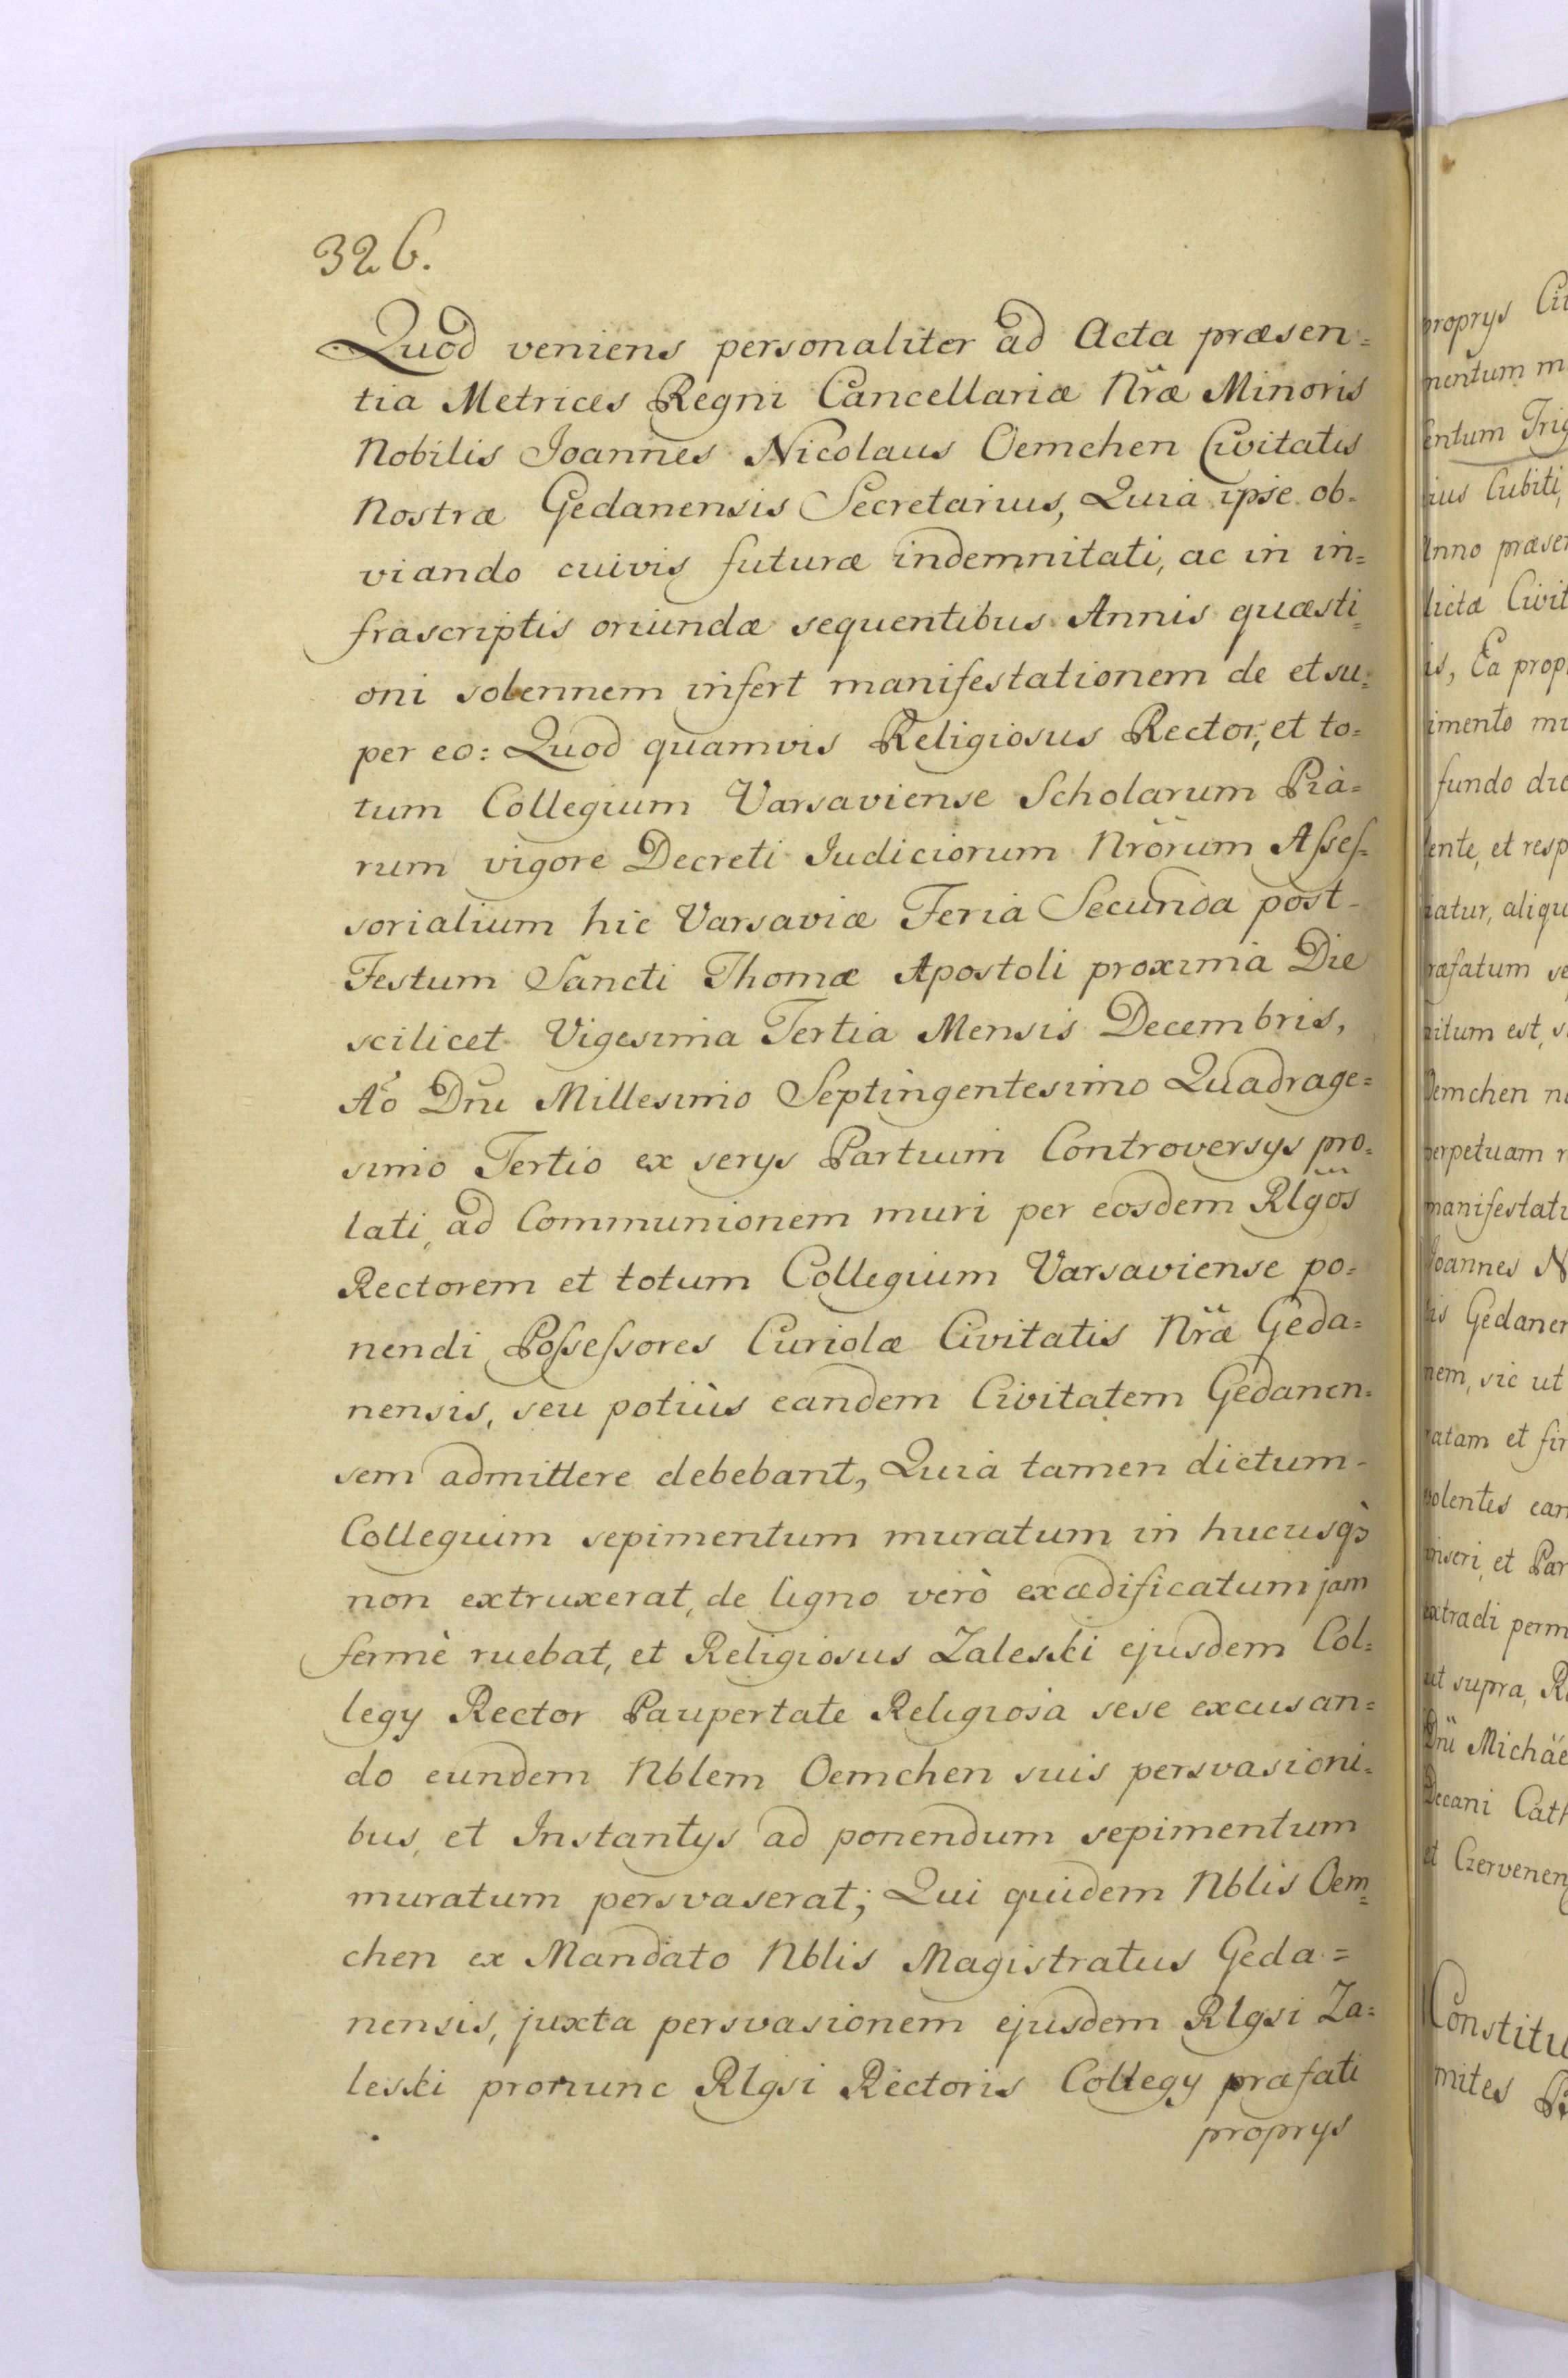 326.
Quod veniens personaliter ad Acta præsen=
tia Metrices Regni Cancellariæ Nr̃æ Minoris
Nobilis Joannes Nicolaus Oemchen Civitatis
Nostræ Gedanensis Secretarius, Quia ipse ob=
viando cuivis futuræ indemnitati, ac in in=
frascriptis oriundæ sequentibus Annis quæsti=
oni solennem infert manifestationem de et su=
per eo: Quod quamvis Religiosus Rector, et to=
tum Collegium Varsaviense Scholarum Pia=
rum vigore Decreti Judiciorum Nr̃orum Asses=
sorialium hic Varsaviæ Feria Secunda post
Festum Sancti Thomæ Apostoli proxima Die
scilicet Vigesima Tertia Mensis Decembris,
Aō Dni Millesimo Septingentesimo Quadrage=
simo Tertio ex serys Partium Controversys pro=
lati, ad Communionem muri per eosdem Rlgōs
Rectorem et totum Collegium Varsaviense po=
nendi Possessores Curiolæ Civitatis Nr̃æ Geda=
nensis, seu potiùs eandem Civitatem Gedanen=
sem admittere debebant, Quia tamen dictum
Collegium sepimentum muratum in hucusq̀
non extruxerat, de ligno verò exædificatum jam
fermè ruebat, et Religiosus Zaleski ejusdem Col=
legy Rector Paupertate Religiosa sese excusan=
do eundem Nblem Oemchen suis persvasioni=
bus, et Instantys ad ponendum sepimentum
muratum persvaserat; Qui quidem Nblis Oem=
chen ex Mandato Nblis Magistratus Geda=
nensis, juxta persvasionem ejusdem Rlgsi Za=
leski pronunc Rlgsi Rectoris Collegy præfati
proprys
proprys
mentum
Anno
is, Ea
imento
fundo
et
est,
Oemchen
perpetuam
Joannes
sic ut
et
et
supra,
Michäe
Decani
et Czervenen
Constitu